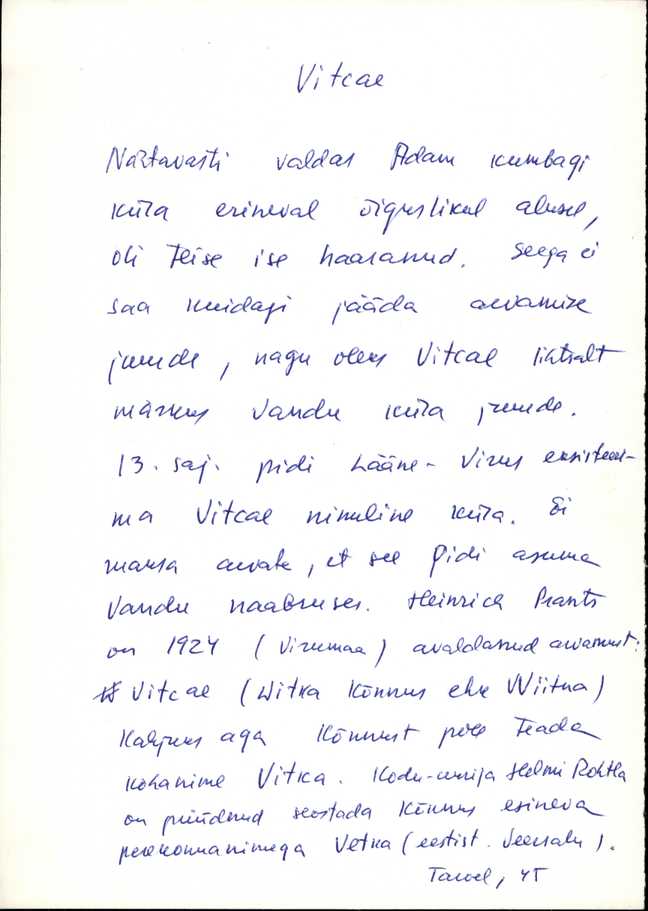 Vitcae
Nähtavasti valdas Adam kumbagi
küla erineval õiguslikul alusel,
oli teise ise haaranud. Seega ei
saa kuidagi jääda arvamise
juurde, nagu oleks Vitcae lihtsalt
märkus Vandu küla juurde.
13. saj. pidi Lääne-Virus eksisteeri-
ma Vitcae nimeline küla. Ei
maksa arvata, et see pidi asuma
Vandu naabruses. Heinrich Prants
on 1924 (Virumaa) avaldanud arvamust:
Vitcae (Witka Kõnnus ehk Wiitna)
Kahjuks aga Kõnnust pole teada
kohanime Vitka. Kodu-uurija Helmi Rohtla
on püüdnud seostada Kõnnus esineva
perekonnanimega Vetka (eestist. Veersalu).
Tarvel, 45